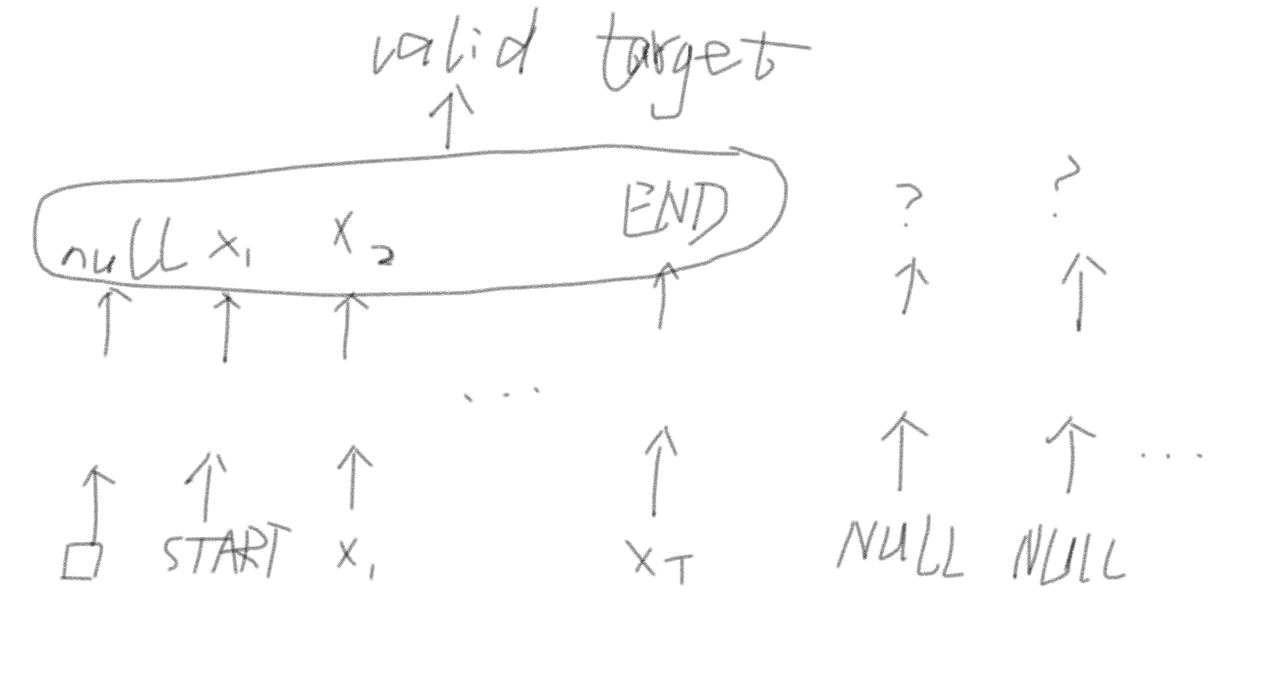 valid target
null x₁ x₂ END ? ?
... ...
START x₁ x_T NULL NULL